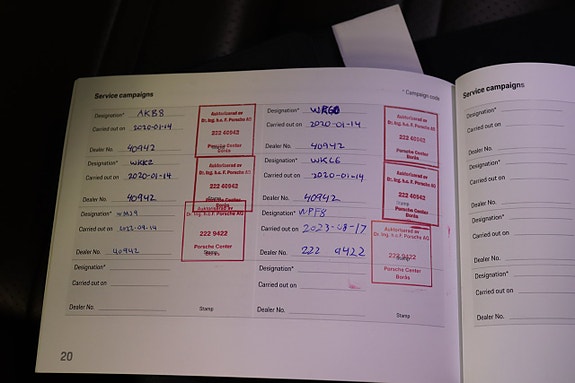 Service campaigns
* Campaign code
Designation* AKB8
Carried out on 2020-01-14
Dealer No. 40942
Auktoriserad av
Dr. Ing. h.c. F. Porsche AG
222 40942
Porsche Center
Borås
Designation* WKK2
Carried out on 2020-01-14
Dealer No. 40942
Auktoriserad av
Dr. Ing. h.c. F. Porsche AG
222 40942
Stamp
Designation*
Carried out on
Dealer No. 40942
Auktoriserad av
Dr. Ing. h.c. F. Porsche AG
222 9422
Porsche Center
Stamp
Designation*
Carried out on
Dealer No.
Stamp
Designation*
Carried out on 2020-01-14
Dealer No. 40942
Auktoriserad av
Dr. Ing. h.c. F. Porsche AG
222 40942
Porsche Center
Borås
Designation* WKC6
Carried out on 2020-01-14
Dealer No. 40942
Auktoriserad av
Dr. Ing. h.c. F. Porsche AG
222 40942
Stamp
Porsche Center
Borås
Designation* WPF8
Carried out on 2023-08-17
Dealer No. 222 9422
Auktoriserad av
Dr. Ing. h.c. F. Porsche AG
222 9422
Stamp
Porsche Center
Borås
Designation*
Carried out on
Dealer No.
Stamp
20
Service campaigns
Designation*
Carried out on
Dealer No.
Designation*
Carried out on
Dealer No.
Designation*
Carried out on
Dealer No.
Designation*
Carried out on
Dealer No.